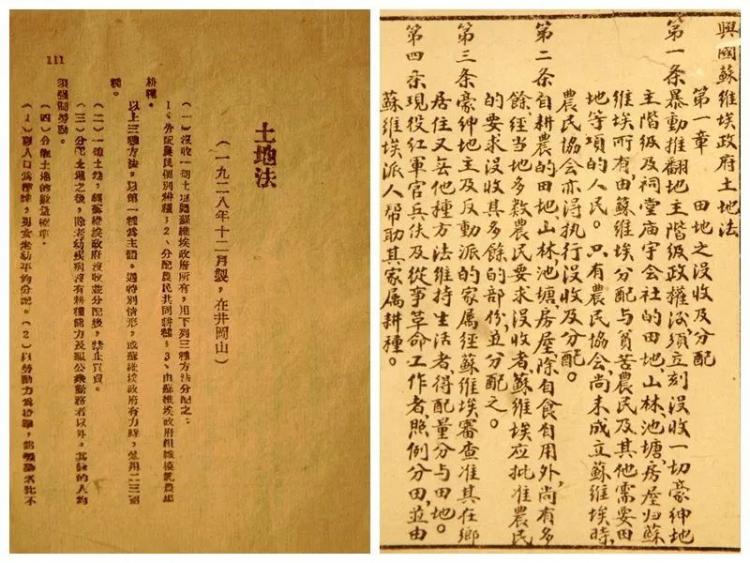 111
土地法
（一九二八年十二月製，在井岡山）
（一）沒收一切土地歸蘇維埃政府所有，用下列三種方法分配之：
1、分配農民個別耕種；2、分配農民共同耕種；3、由蘇維埃政府組織模範農場
耕種。
以上三種方法，以第一種爲主體。遇特別情形，或蘇維埃政府有力時，兼用二三兩
種。
（二）一切土地，經蘇維埃政府沒收並分配後，禁止買賣。
（三）分配土地之後，除老幼疾病沒有耕種能力及服公衆勤務者以外，其餘的人均
須强制勞動。
（四）分配土地的數量標準：
（1）以人口爲標準，男女老幼平均分配。（2）以勞動力爲標準，能勞動者比不
興國蘇維埃政府土地法
第一章 田地之沒收及分配
第一条暴動推翻地主階級政權後，須立刻沒收一切豪紳地
主階級及祠堂庙宇会社的田地、山林、池塘、房屋归蘇
維埃所有，由蘇維埃分配与貧苦農民及其他需要田
地等項的人民。只有農民協会，尚未成立蘇維埃時，
農民協会亦得执行沒收及分配。
第二条自耕農的田地、山林、池塘、房屋，除自食自用外，尚有多
餘，經当地多数農民要求沒收者，蘇維埃应批准農民
的要求沒收其多餘的部份，並分配之。
第三条豪紳地主及反動派的家属，經蘇維埃審查，准其在鄉
居住，又無他種方法維持生活者，得配量分与田地。
第四条現役紅軍官兵伕及從事革命工作者，照例分田，並由
蘇維埃派人帮助其家属耕種。